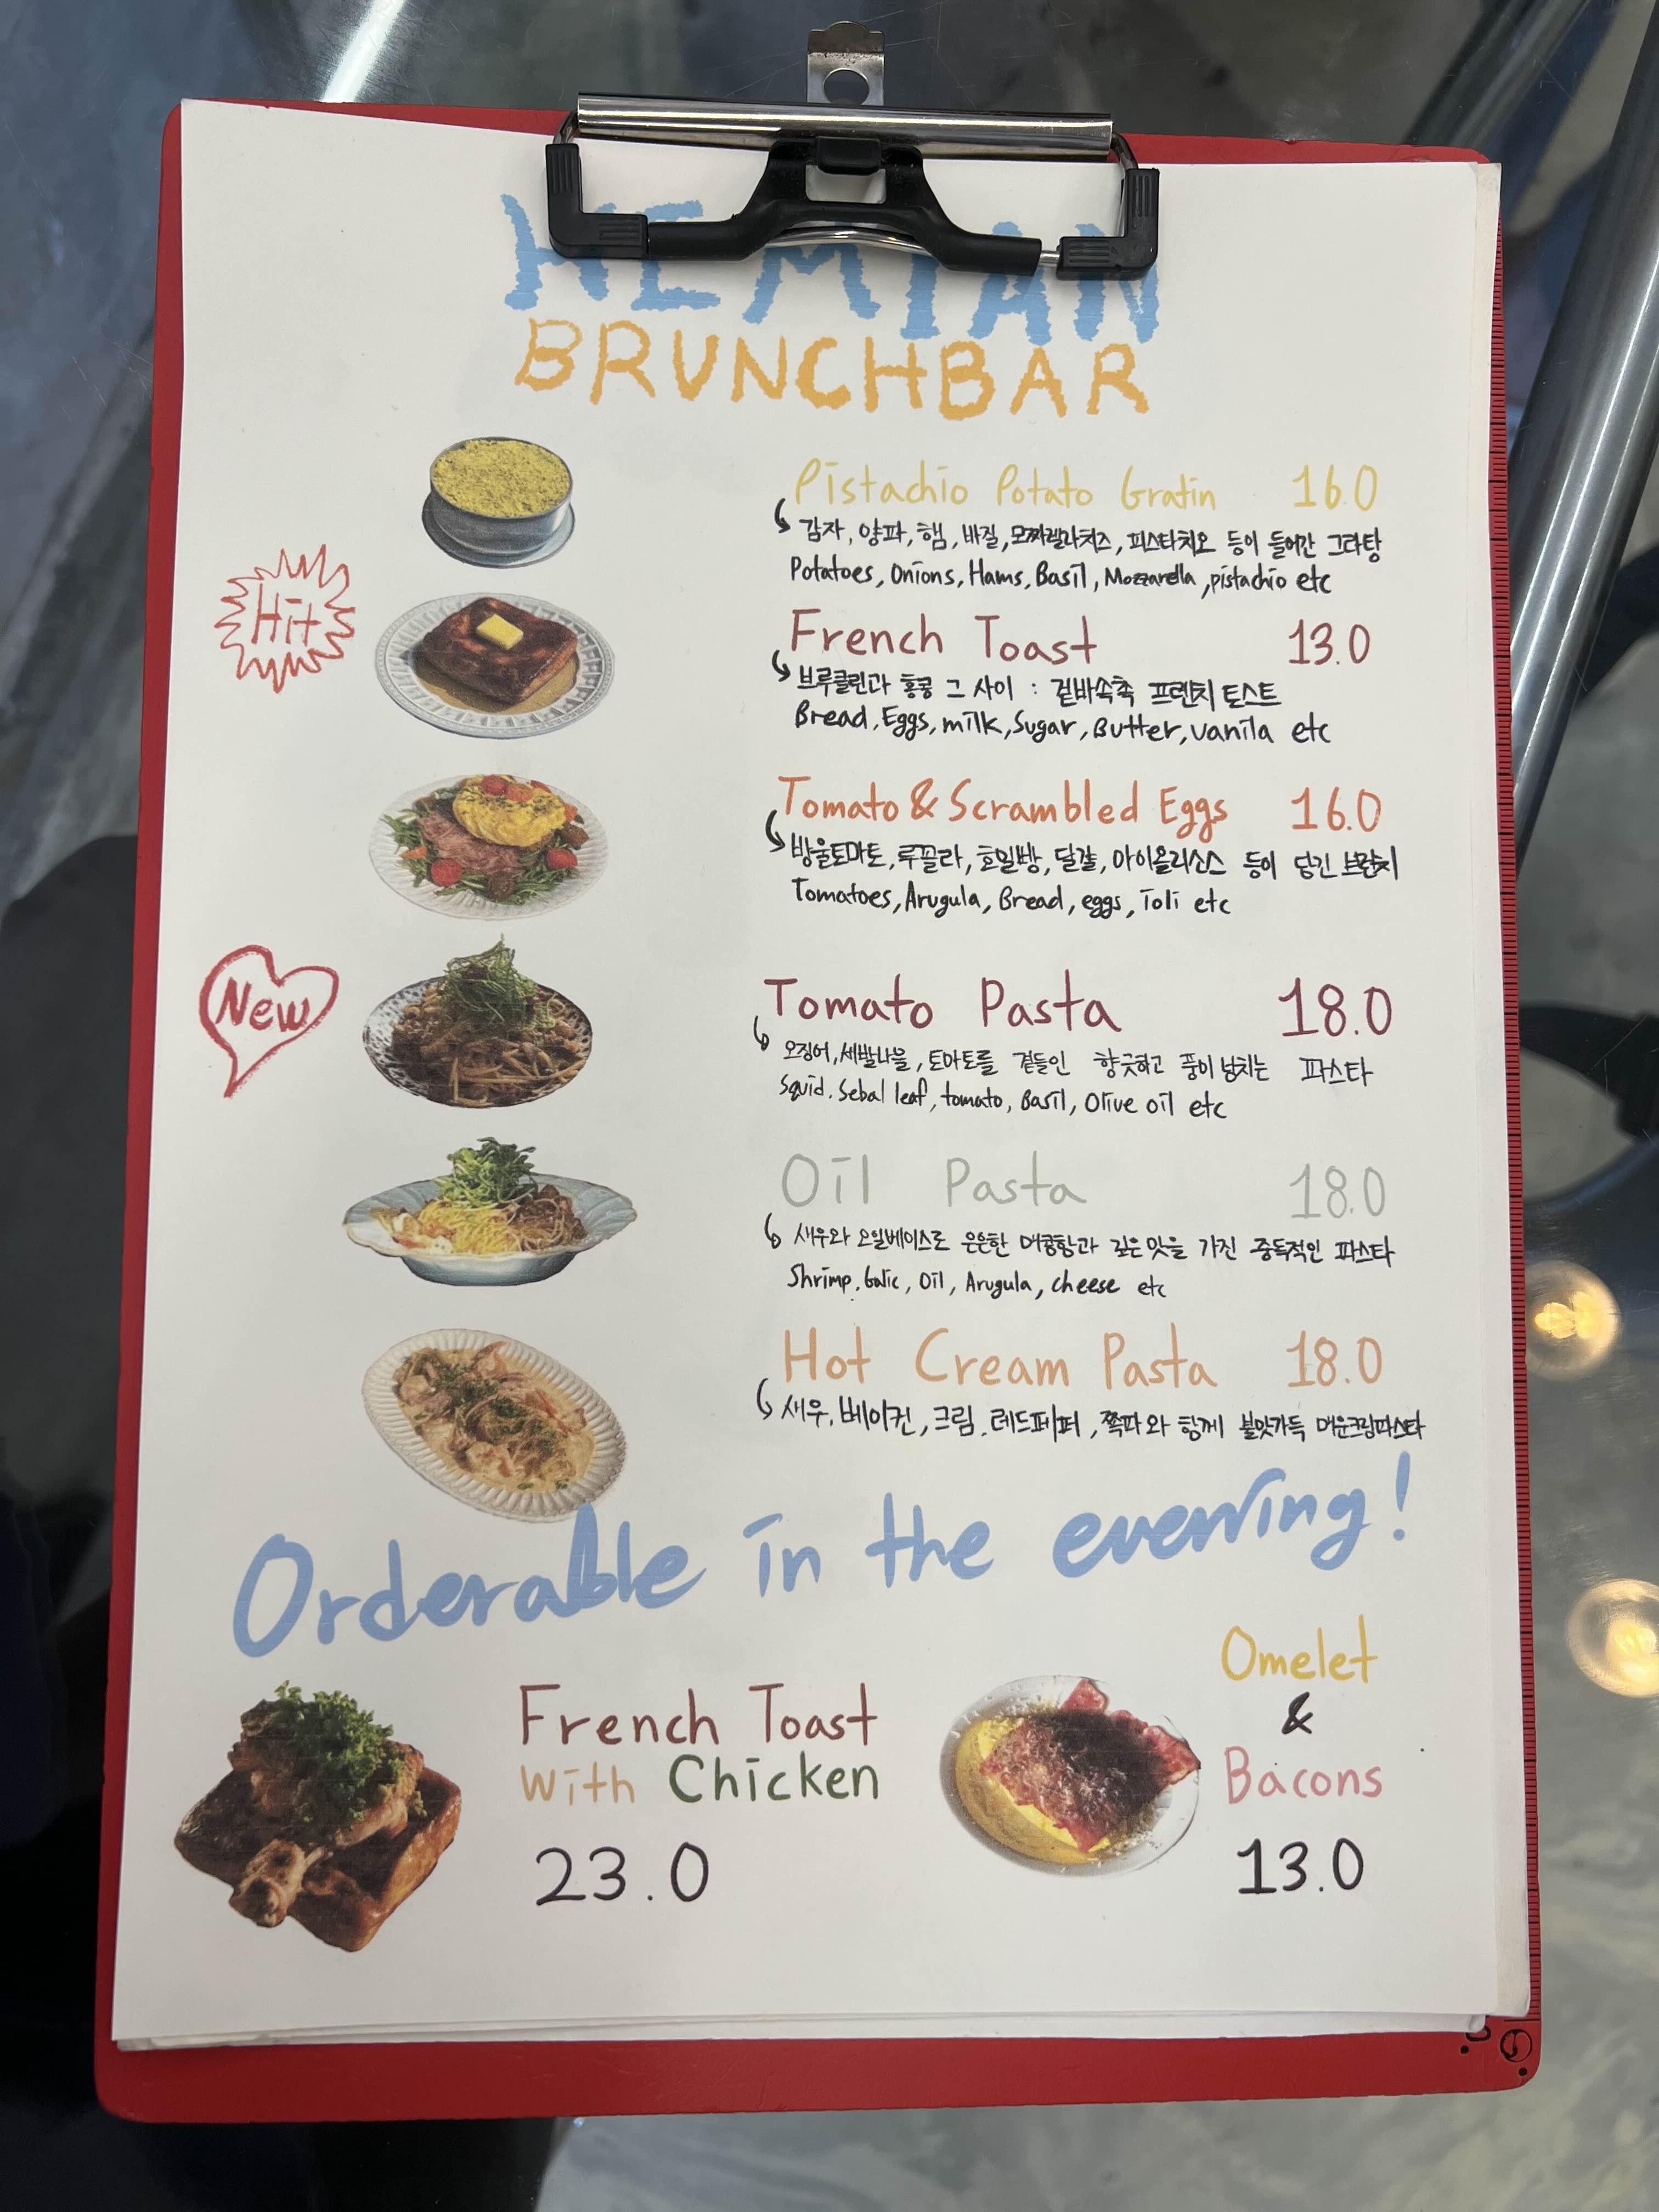 BRUNCHBAR
Pistachio Potato Gratin 16.0
감자, 양파, 햄, 바질, 모짜렐라치즈, 피스타치오 등이 들어간 그라탕
Potatoes, Onions, Hams, Basil, Mozzarella, pistachio etc
Hit
French Toast 13.0
브루클린과 홍콩 그 사이 : 겉바속촉 프렌치 토스트
Bread, Eggs, milk, Sugar, Butter, vanila etc
Tomato & Scrambled Eggs 16.0
방울토마토, 루꼴라, 호밀빵, 달걀, 아이올리소스 등이 담긴 브런치
Tomatoes, Arugula, Bread, eggs, ioli etc
New
Tomato Pasta 18.0
오징어, 세발나물, 토마토를 곁들인 향긋하고 풍미 넘치는 파스타
Squid, Sebal leaf, tomato, Basil, Olive oil etc
Oil Pasta 18.0
새우와 오일베이스로 은은한 매콤함과 깊은맛을 가진 중독적인 파스타
Shrimp, Galic, Oil, Arugula, cheese etc
Hot Cream Pasta 18.0
새우, 베이컨, 크림, 레드페퍼, 쪽파와 함께 불맛가득 매운크림파스타
Orderable in the evening!
French Toast
with Chicken
23.0
Omelet
&
Bacons
13.0